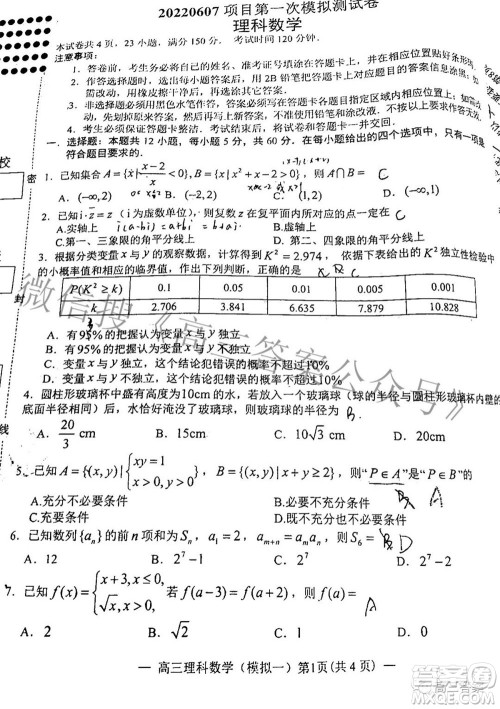 20220607 项目第一次模拟测试卷
理科数学
本试卷共4页，23小题，满分150分．考试时间120分钟．
注意事项：
1．答卷前，考生务必将自己的姓名、准考证号填涂在答题卡上，并在相应位置贴好条形码．
2．作答选择题时，选出每小题答案后，用2B铅笔把答题卡上对应题目的答案信息点涂黑，如
需改动，用橡皮擦干净后，再选涂其它答案．
3．非选择题必须用黑色水笔作答，答案必须写在答题卡各题目指定区域内相应位置上，如需
改动，先划掉原来的答案，然后再写上新答案，不准使用铅笔和涂改液．
4．考生必须保证答题卡整洁．考试结束后，将试卷和答题卡一并交回．
一．选择题：本题共12小题，每小题5分，共60分．在每小题给出的四个选项中，只有一项是
符合题目要求的．
1．已知集合A={x|(x-2)/x<0}，B={x|x²-x-2<0}，则A∩B= C
A．(-∞,2) B．(-∞,2) C．(0,2) D．(-∞,0)
2．已知i·z̄=z（i为虚数单位），则复数z在复平面内对应的点一定在 C
A.实轴上 B.虚轴上
i(a-bi)=a+bi
C.第一、三象限的角平分线上 D.第二、四象限的角平分线上
3．根据分类变量x与y的观察数据，计算得到K²=2.974，依据下表给出的K²独立性检验中
的小概率值和相应的临界值，作出下列判断，正确的是
P(K²≥k) 0.1 0.05 0.01 0.005 0.001
k 2.706 3.841 6.635 7.879 10.828
A．有95%的把握认为变量x与y独立
B．有95%的把握认为变量x与y不独立
C．变量x与y独立，这个结论犯错误的概率不超过10%
D．变量x与y不独立，这个结论犯错误的概率不超过10%
4．圆柱形玻璃杯中盛有高度为10cm的水，若放入一个玻璃球（球的半径与圆柱形玻璃杯内壁的
底面半径相同）后，水恰好淹没了玻璃球，则玻璃球的半径为 B
A．20/3 cm B．15cm C．10√3 cm D．20cm
5．已知A={(x,y)|{xy=1
，则"P∈A"是"P∈B"的
A.充分不必要条件 B.必要不充分条件 A
C.充要条件 D.既不充分也不必要条件
6．已知数列{aₙ}的前n项和为Sₙ，a₁=2，aₘ₊ₙ=aₘaₙ，则 D
A．12 B．2⁷-1 C．2⁷ D．2⁷-2
7．已知f(x)={x+3,x≤0
若f(a-3)=f(a+2)，则f(a)= A
A．2 B．√2 C．1 D．0
— 高三理科数学（模拟一）第1页(共4页) —
校
密
封
线
微信搜《高三答案公众号》